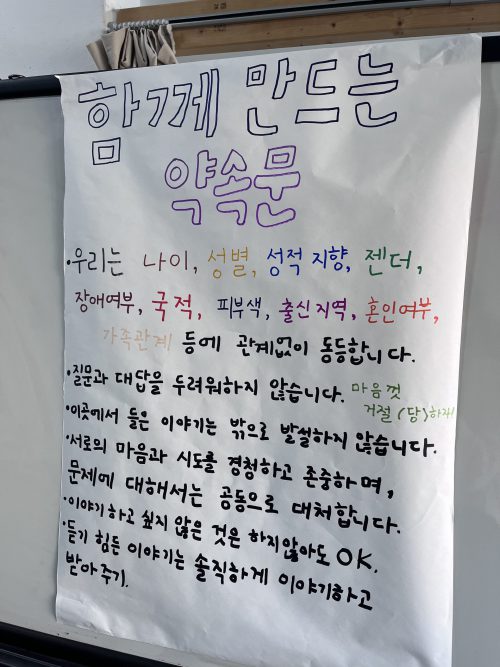 함께 만드는
약속문
·우리는 나이, 성별, 성적 지향, 젠더,
장애여부, 국적, 피부색, 출신지역, 혼인여부,
가족관계 등에 관계없이 동등합니다.
·질문과 대답을 두려워하지 않습니다. 마음껏
거절(당)하자!
·이곳에서 들은 이야기는 밖으로 발설하지 않습니다.
·서로의 마음과 시도를 경청하고 존중하며,
문제에 대해서는 공동으로 대처합니다.
·이야기하고 싶지 않은 것은 하지않아도 OK.
·듣기 힘든 이야기는 솔직하게 이야기하고
받아주기.